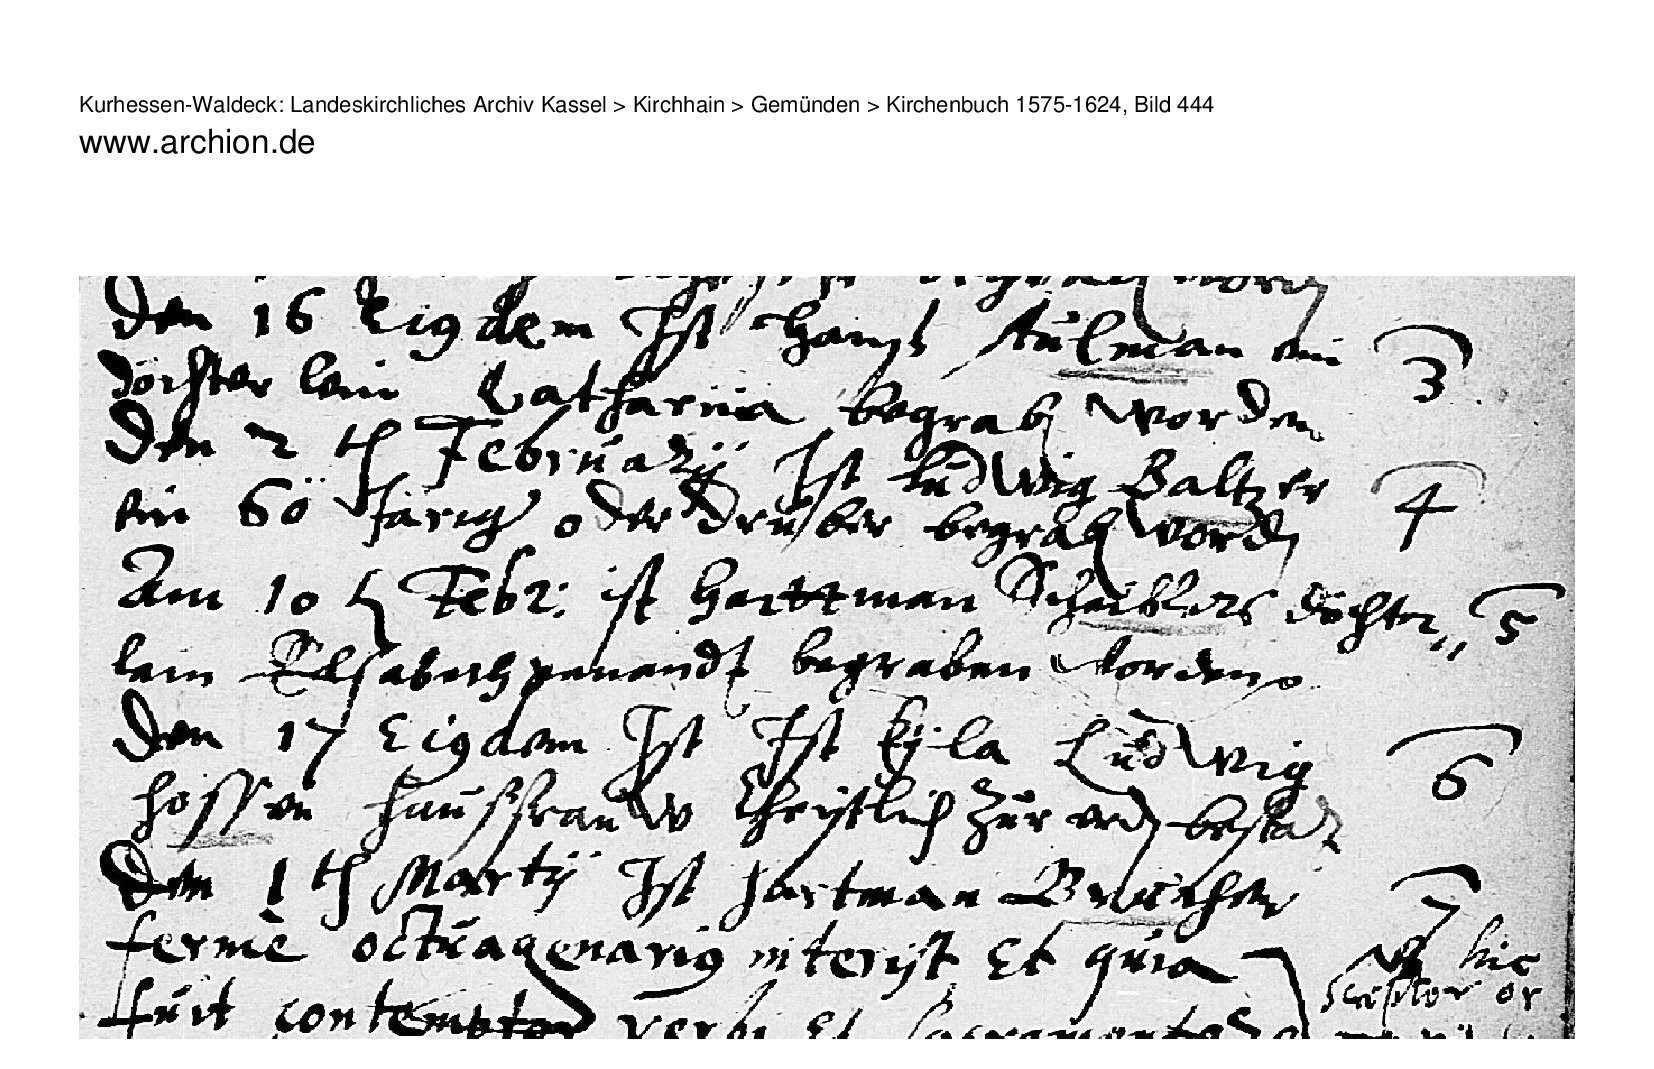 Kurhessen-Waldeck: Landeskirchliches Archiv Kassel > Kirchhain > Gemünden > Kirchenbuch 1575-1624, Bild 444
www.archion.de
Den 16 Eiusdem Ist Hanß Aulman ein 3
döchterlein Catharina begrab worden
Den 2 th Februarij Ist Ludwig Baltzer
ein 60 Järig oder drüber begrab word 4
Am 10 Febr: ist Harttman Scheiblers döchter,, 5
lein Elsabeth genandt begraben worden
Den 17 Eiusdem Ist Ist Eyla Ludwig
Hossen haußfrauw Christlich zur erd bestad 6
Den 1 th Martij Ist Hartman 7
fermè octuagenarius interijt Et quia
hic
fuit contemptor verbi Et Sacramentor